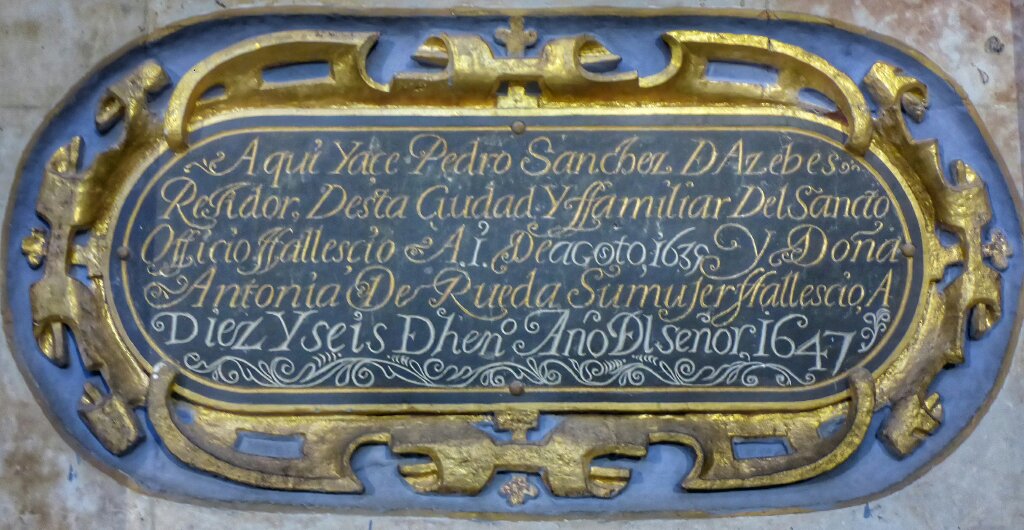 Aqui Yaçe Pedro Sanchez DAzebes
Regidor, Desta Ciudad Y ffamiliar Del Sancto
Officio ffallescio A.1. De agoto, 1635 Y Doña
Antonia De Rueda Su muger ffallescio, A
Diez Y seis D hen.o Año Dl señor, 1647